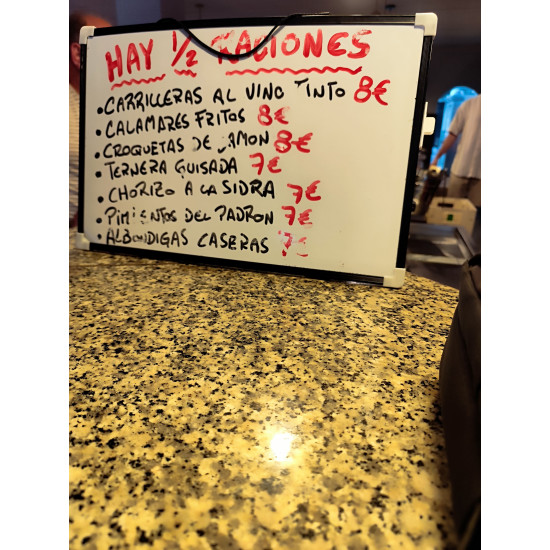 HAY ½ RACIONES
• CARRILLERAS AL VINO TINTO 8€
• CALAMARES FRITOS 8€
• CROQUETAS DE JAMON 8€
• TERNERA GUISADA 7€
• CHORIZO A LA SIDRA 7€
• PIMIENTOS DEL PADRON 7€
• ALBONDIGAS CASERAS 7€